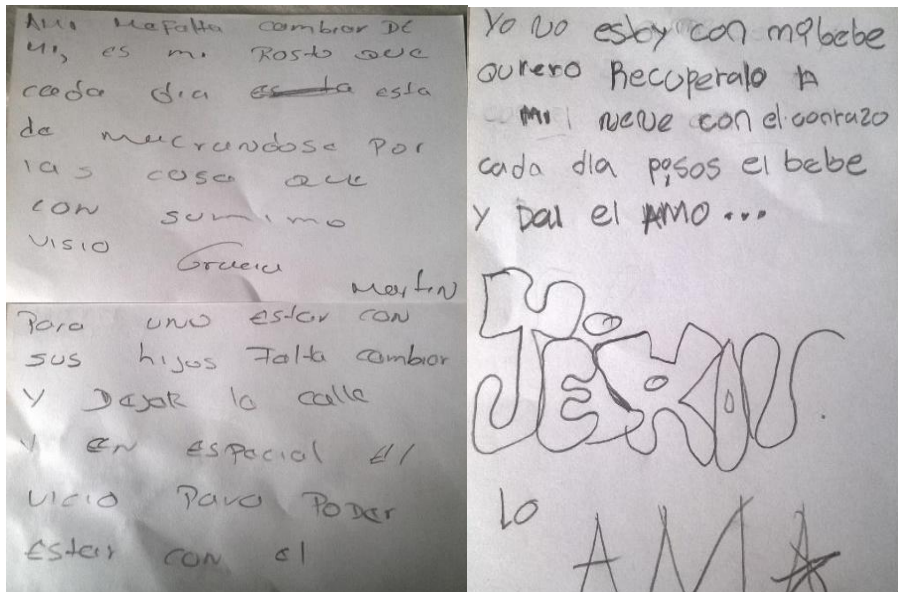 AMi MeFalta cambiar DE
Mi, es mi Rosto que
cada dia esta esta
de mucrandose Por
las cosa que
con sumimo
visio
Gracia
Martin
Para uno estar con
sus hijos Falta cambiar
Y DeJaR la calle
Y EN ESPacial El
vicio Para PoDer
Estar con el
Yo No estoy con mi bebe
qurero Recuperalo A
mi neNe con el
cada dia el bebe
y el AMO...
Lo
AMA